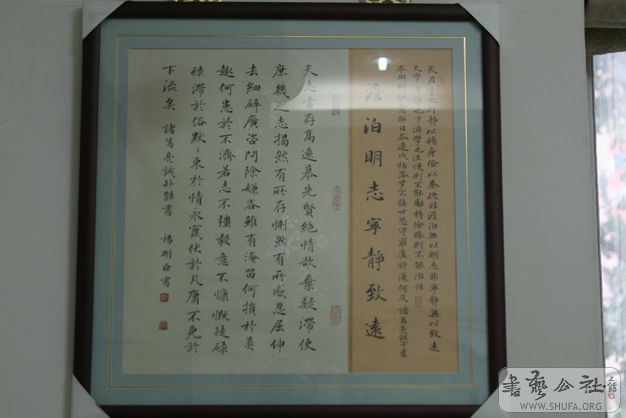 夫君子之行靜以脩身儉以養德非澹泊無以明志非寧靜無以致遠
夫學須靜也才須學也淫慢則不能勵精險躁則不能治性
年與時馳意與日去遂成枯落多不接世悲守窮廬將復何及 諸葛亮誡子書
澹泊明志寧靜致遠
夫志當存高遠慕先賢絕情欲棄疑滯使
庶幾之志揭然有所存惻然有所感忍屈伸
去細碎廣咨問除嫌吝雖有淹留何損於美
趣何患於不濟若志不彊毅意不慷慨徒碌
碌滯於俗默默束於情永竄伏於凡庸不免於
下流矣 諸葛亮誡外甥書 楊明臣書
書藝公社
WWW.SHUFA.ORG